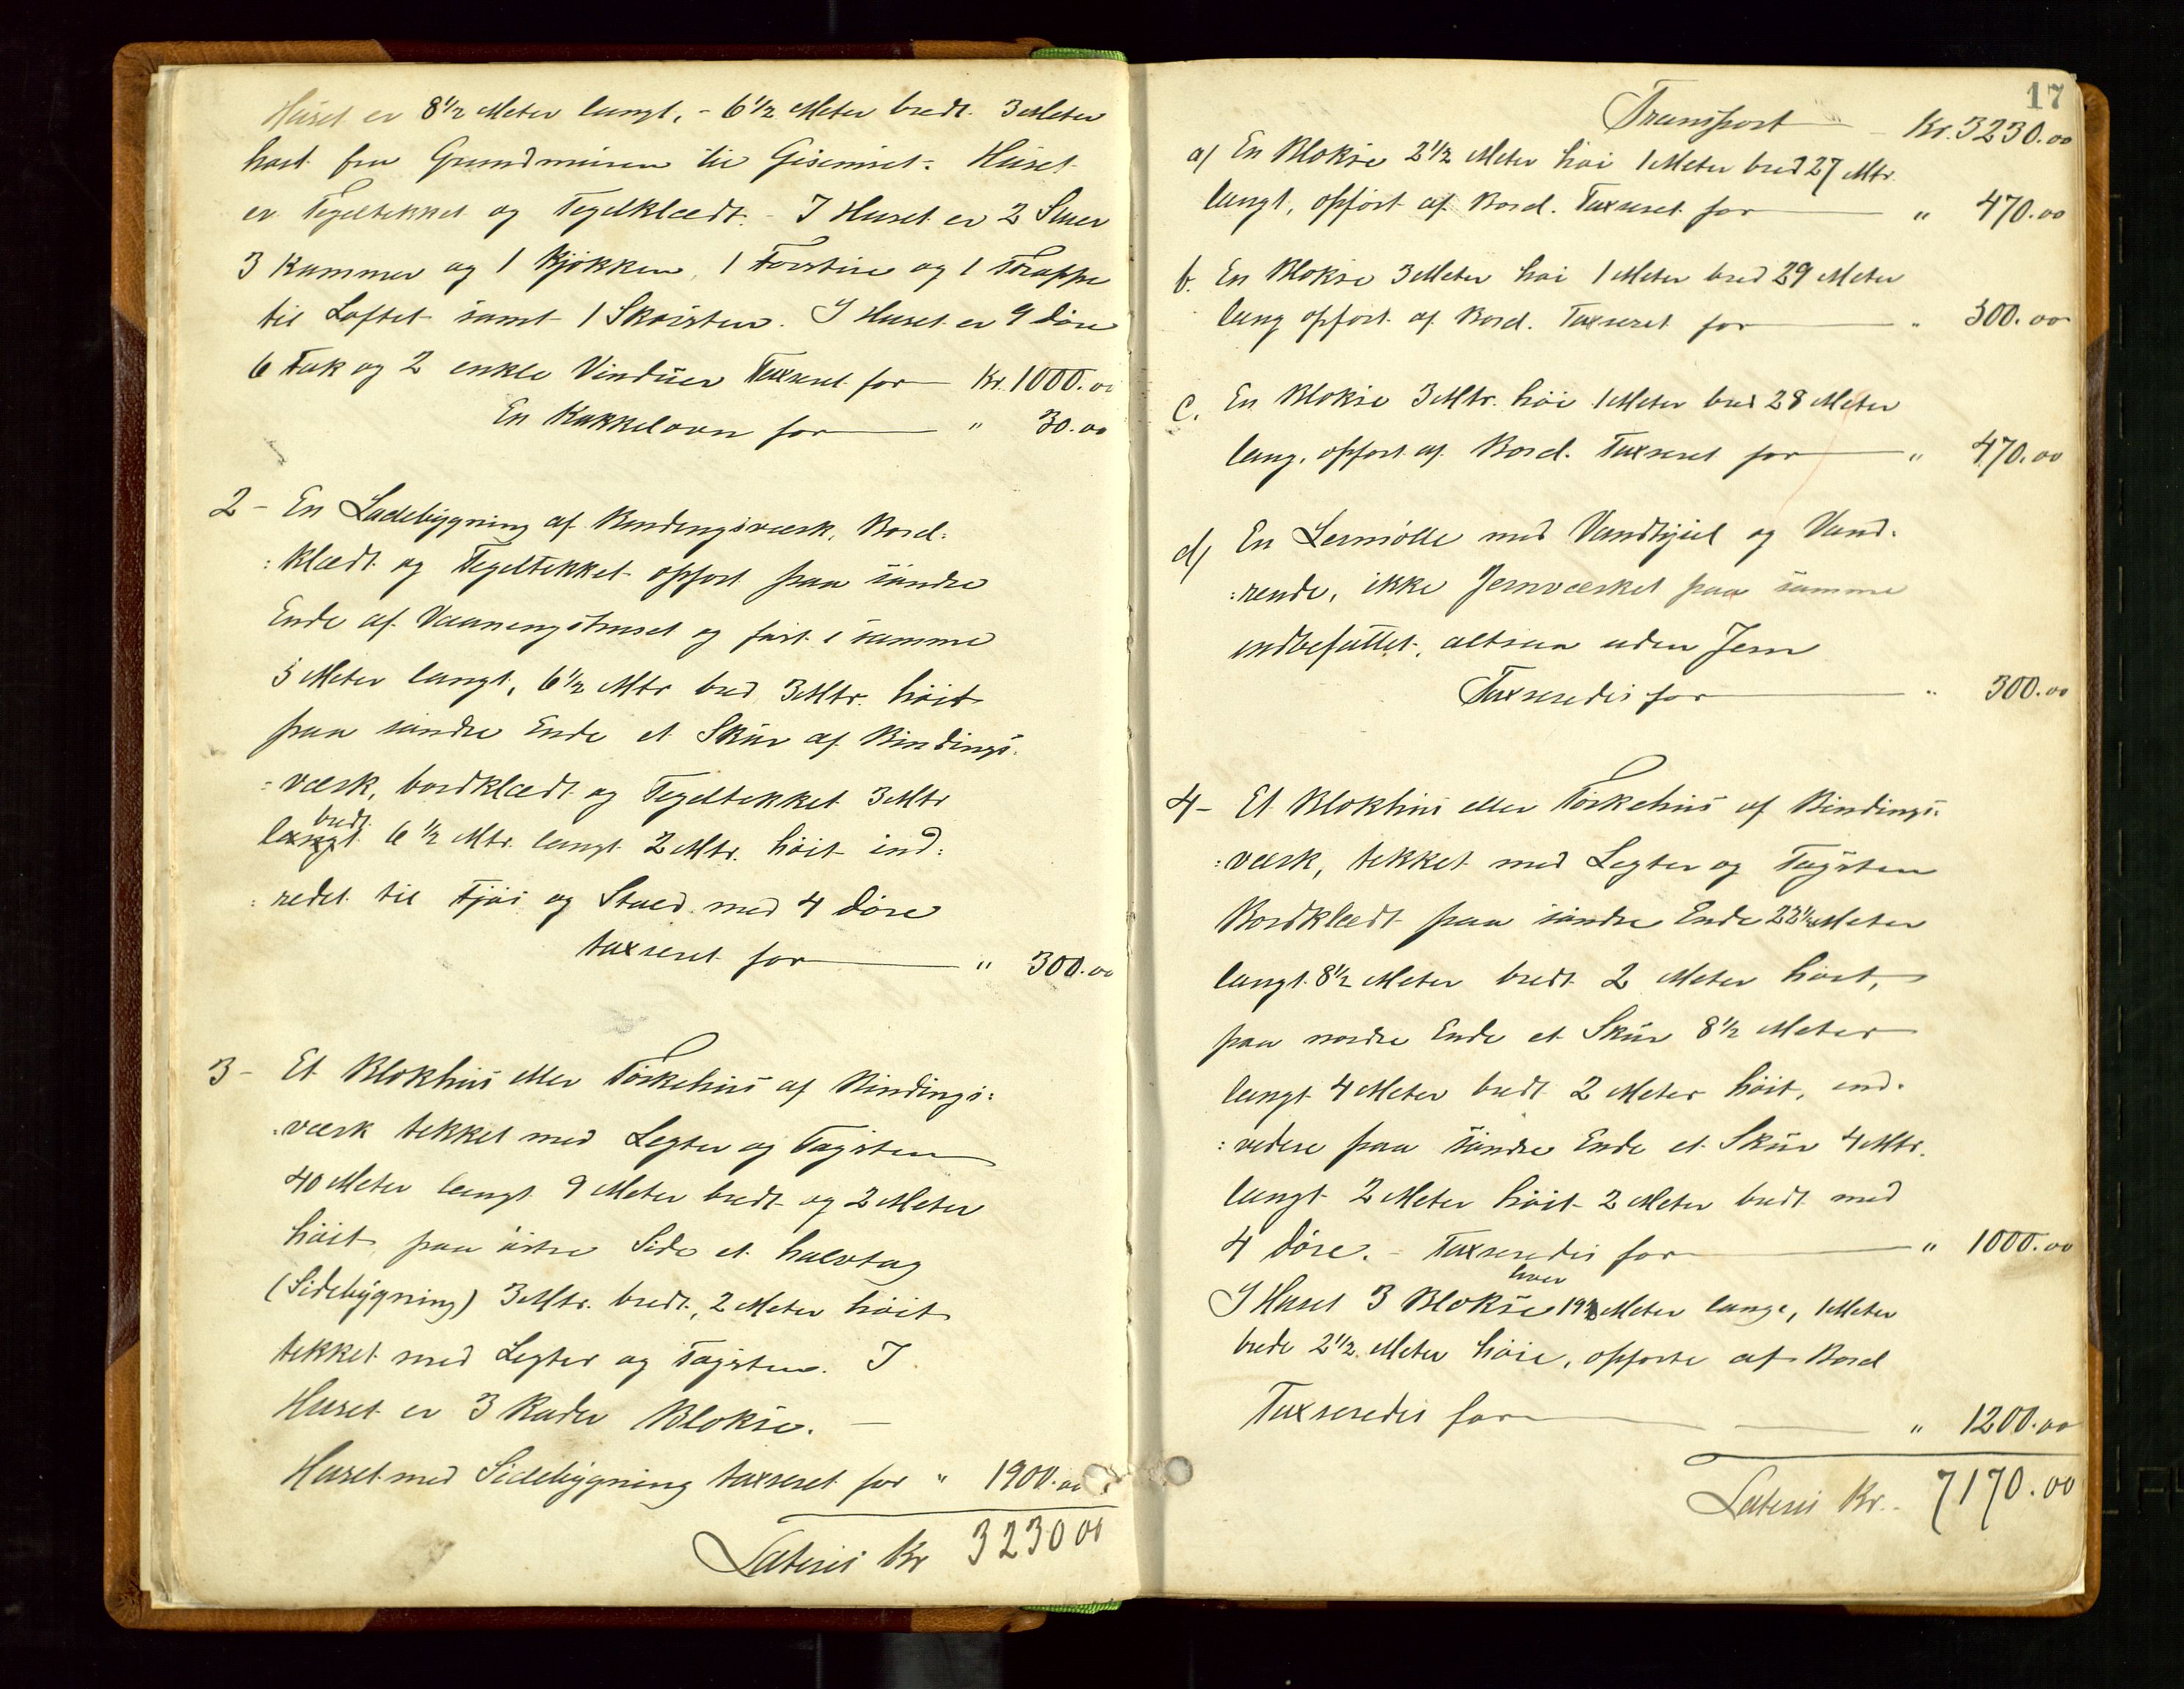 Huset er 8 1/2 Meter langt, - 6 1/2 Meter bredt. 3 Meter
høit fra Grundmuren til Gisemset. Huset
er Tegeltekket og Tegelklædt. - I Huset er 2 Stuer
3 Kammer og 1 Kjøkken, 1 Forstue og 1 Trappe
til Loftet samt 1 Skorsten. I Huset er 9 Døre
6 Fak og 2 enkle Vinduer Taxeret for Kr. 1000.00
En Kakkelovn for " 30.00
2 - En Ladebygning af Bindingsværk, Bord:
:klædt og Tegeltekket opført paa søndre
Ende af Vaaningshuset og fast i samme
5 Meter langt, 6 1/2 Mtr bred 3 Mtr. høit
paa søndre Ende et Skur af Bindings-
:værk, bordklædt og Tegeltekket 3 Mtr
bredt
langt 6 1/2 Mtr. langt 2 Mtr. høit ind:
:redet til Fjøs og Stald med 4 Døre
taxeret for " 300.00
3 - Et Blokhus eller Tørkehus af Bindings:
:værk tekket med Legter og Tagsten
40 Meter langt 9 Meter bredt og 2 Meter
høit, paa østre Side et halvtag
(Sidebygning) 3 Mtr. bredt, 2 Meter høit
tekket med Legter og Tagsten. I
Huset er 3 Rader Blokse. -
Huset med Sidebygning taxeret for " 1900.00
Lateris Kr 3230 00
17
Transport - Kr. 3230.00
a) En Blokse 2 1/2 Meter høi 1 Meter bred 27 Mtr.
langt, opført af Bord. Taxeret for " 470.00
b. En Blokse 3 Meter høi 1 Meter bred 29 Meter
lang opført af Bord. Taxeret for " 300.00
c. En Blokse 3 Mtr. høi 1 Meter bred 28 Meter
lang, opført af Bord. Taxeret for " 470.00
d) En Lermølle med Vandhjul og Vand-
:rende, ikke Jernværket paa samme
indbefattet, altsaa uden Jern
Taxeredes for " 300.00
4 - Et Blokhus eller Tørkehus af Bindings:
:værk, tekket med Legter og Tagsten
Bordklædt paa søndre Ende 22 1/2 Meter
langt 8 1/2 Meter bredt 2 Meter høit,
paa nordre Ende et Skur 8 1/2 Meter
langt 4 Meter bredt 2 Meter høit, end-
:videre paa søndre Ende et Skur 4 Mtr.
langt 2 Meter høit 2 Meter bredt med
4 Døre. - Taxeredes for " 1000.00
hver
I Huset 3 Blokse Meter lange, 1 Meter
brede 2 1/2 Meter høie, opførte af Bord
Taxeredes for " 1200.00
Lateris Kr. 7170.00